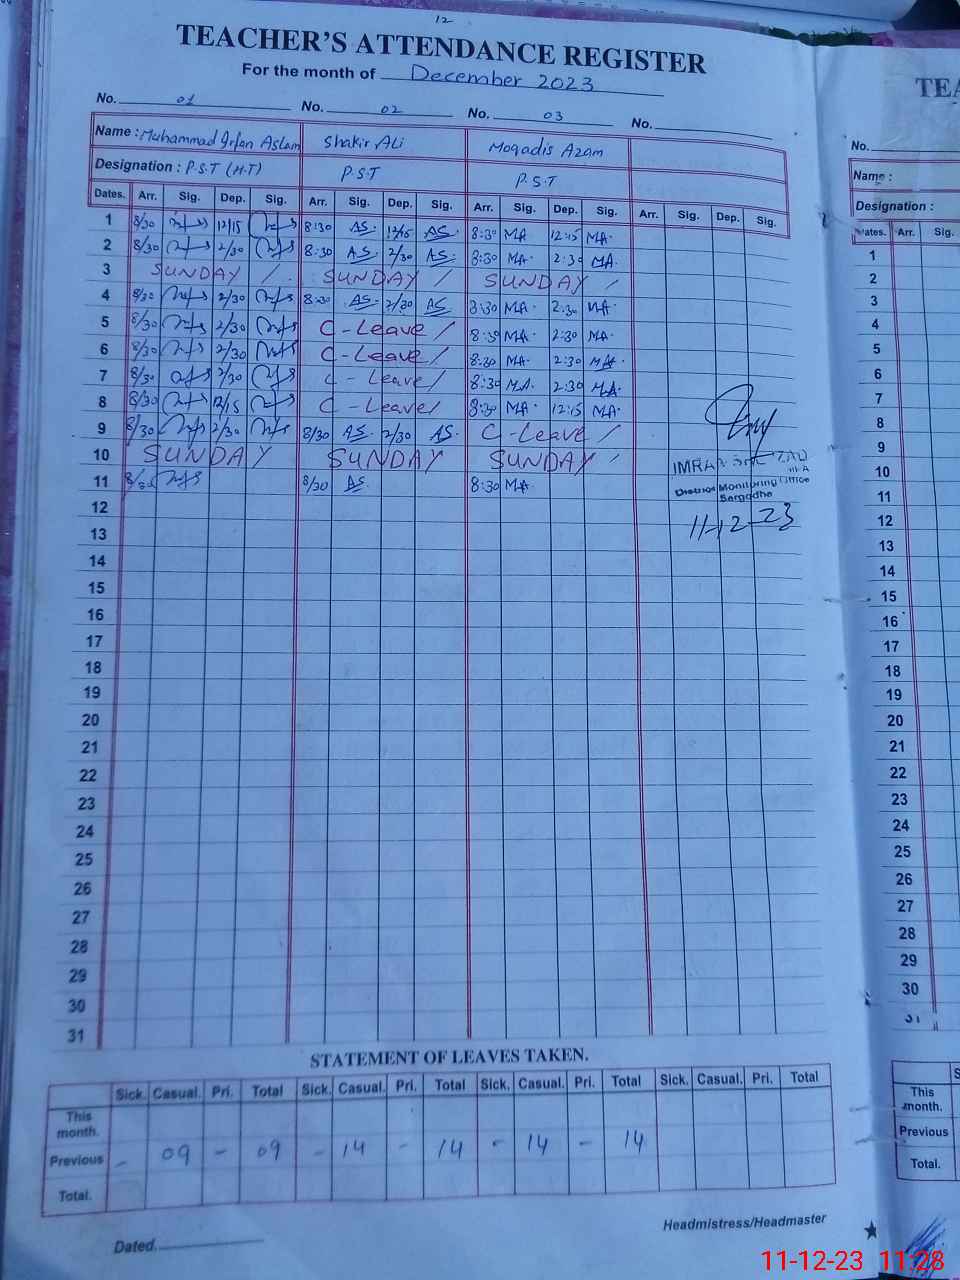 12
TEACHER'S ATTENDANCE REGISTER
For the month of December 2023
No. 01 No. 02 No. 03 No.
Name : Muhammad Irfan Aslam Shakir ALi Moqadis Azam
Designation : P.S.T (H.T) P.S.T P.S.T
Dates. Arr. Sig. Dep. Sig. Arr. Sig. Dep. Sig. Arr. Sig. Dep. Sig. Arr. Sig. Dep. Sig.
1 8/30 12/15 8:30 AS. 12/15 AS. 8:30 MA 12:15 MA.
2 8/30 2/30 8:30 AS. 2/30 AS. 8:30 MA 2:30 MA.
3 SUNDAY / SUNDAY / SUNDAY /
4 8/30 2/30 8:30 AS. 2/30 AS 8:30 MA. 2:30 MA.
5 8/30 2/30 C-Leave / 8:30 MA. 2:30 MA.
6 8/30 2/30 C-Leave / 8:30 MA. 2:30 MA.
7 8/30 2/30 C-Leave / 8:30 MA. 2:30 MA.
8 8/30 12/15 C-Leave / 8:30 MA. 12:15 MA.
9 8/30 2/30 8/30 AS. 2/30 AS. C-Leave /
10 SUNDAY SUNDAY SUNDAY /
11 8/30 8/30 AS. 8:30 MA.
12
13
14
15
16
17
18
19
20
21
22
23
24
25
26
27
28
29
30
31
IMRAN
District Monitoring Office
Sargodha
11-12-23
STATEMENT OF LEAVES TAKEN.
Sick. Casual. Pri. Total Sick. Casual. Pri. Total Sick. Casual. Pri. Total Sick. Casual. Pri. Total
This month.
Previous - 09 - 09 - 14 - 14 - 14 - 14
Total.
Headmistress/Headmaster
Dated.
TEA
No.
Name :
Designation :
Dates. Arr. Sig.
1
2
3
4
5
6
7
8
9
10
11
12
13
14
15
16
17
18
19
20
21
22
23
24
25
26
27
28
29
30
31
S
This month.
Previous
Total.
11-12-23 11:28